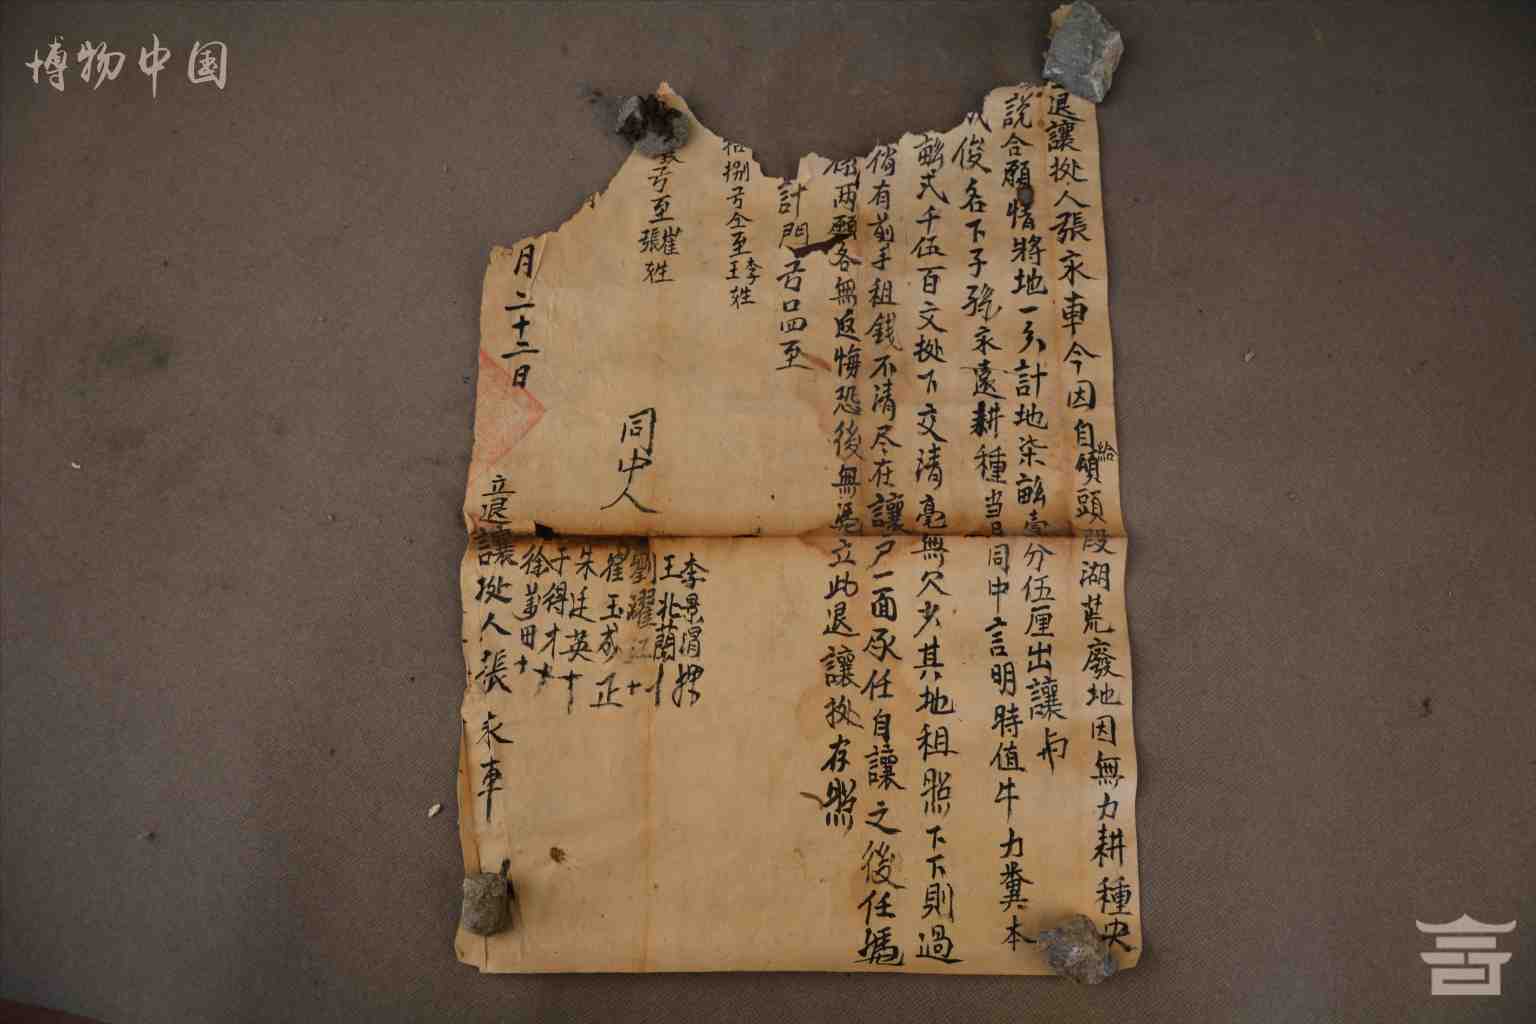 博物中国
退讓拠人張永車今因自給領頭段湖荒廢地因無力耕種央
說合願情將地一分計地柒畝壹分伍厘出讓與
俊名下子孫永遠耕種当日同中言明時值牛力糞本
畝弍千伍百文拠下交清毫無欠少其地租照下下則過
倘有前手租錢不清尽在讓戸一面承任自讓之後任憑
兩願各無返悔恐後無憑立此退讓拠存照
計開号口四至
捌号仝至李王姓
号至崔張姓
同中人
李景渭
王兆蘭
劉濯江十
崔玉成正
朱廷英十
于得才十
徐萬田十
月二十二日
立退讓拠人張永車